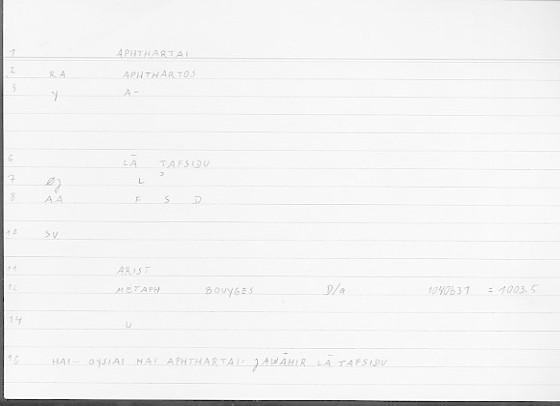 1 APHTHARTAI
2 RA APHTHARTOS
3 y A-
6 LĀ TAFSIDU
7 Øg L ɔ
8 AA F S D
10 SV
11 ARIST
12 METAPH BOUYGES D/a 1040b31 = 1003.5
14 U
16 HAI- OYSIAI HAI APHTHARTAI- JAWĀHIR LĀ TAFSIDU